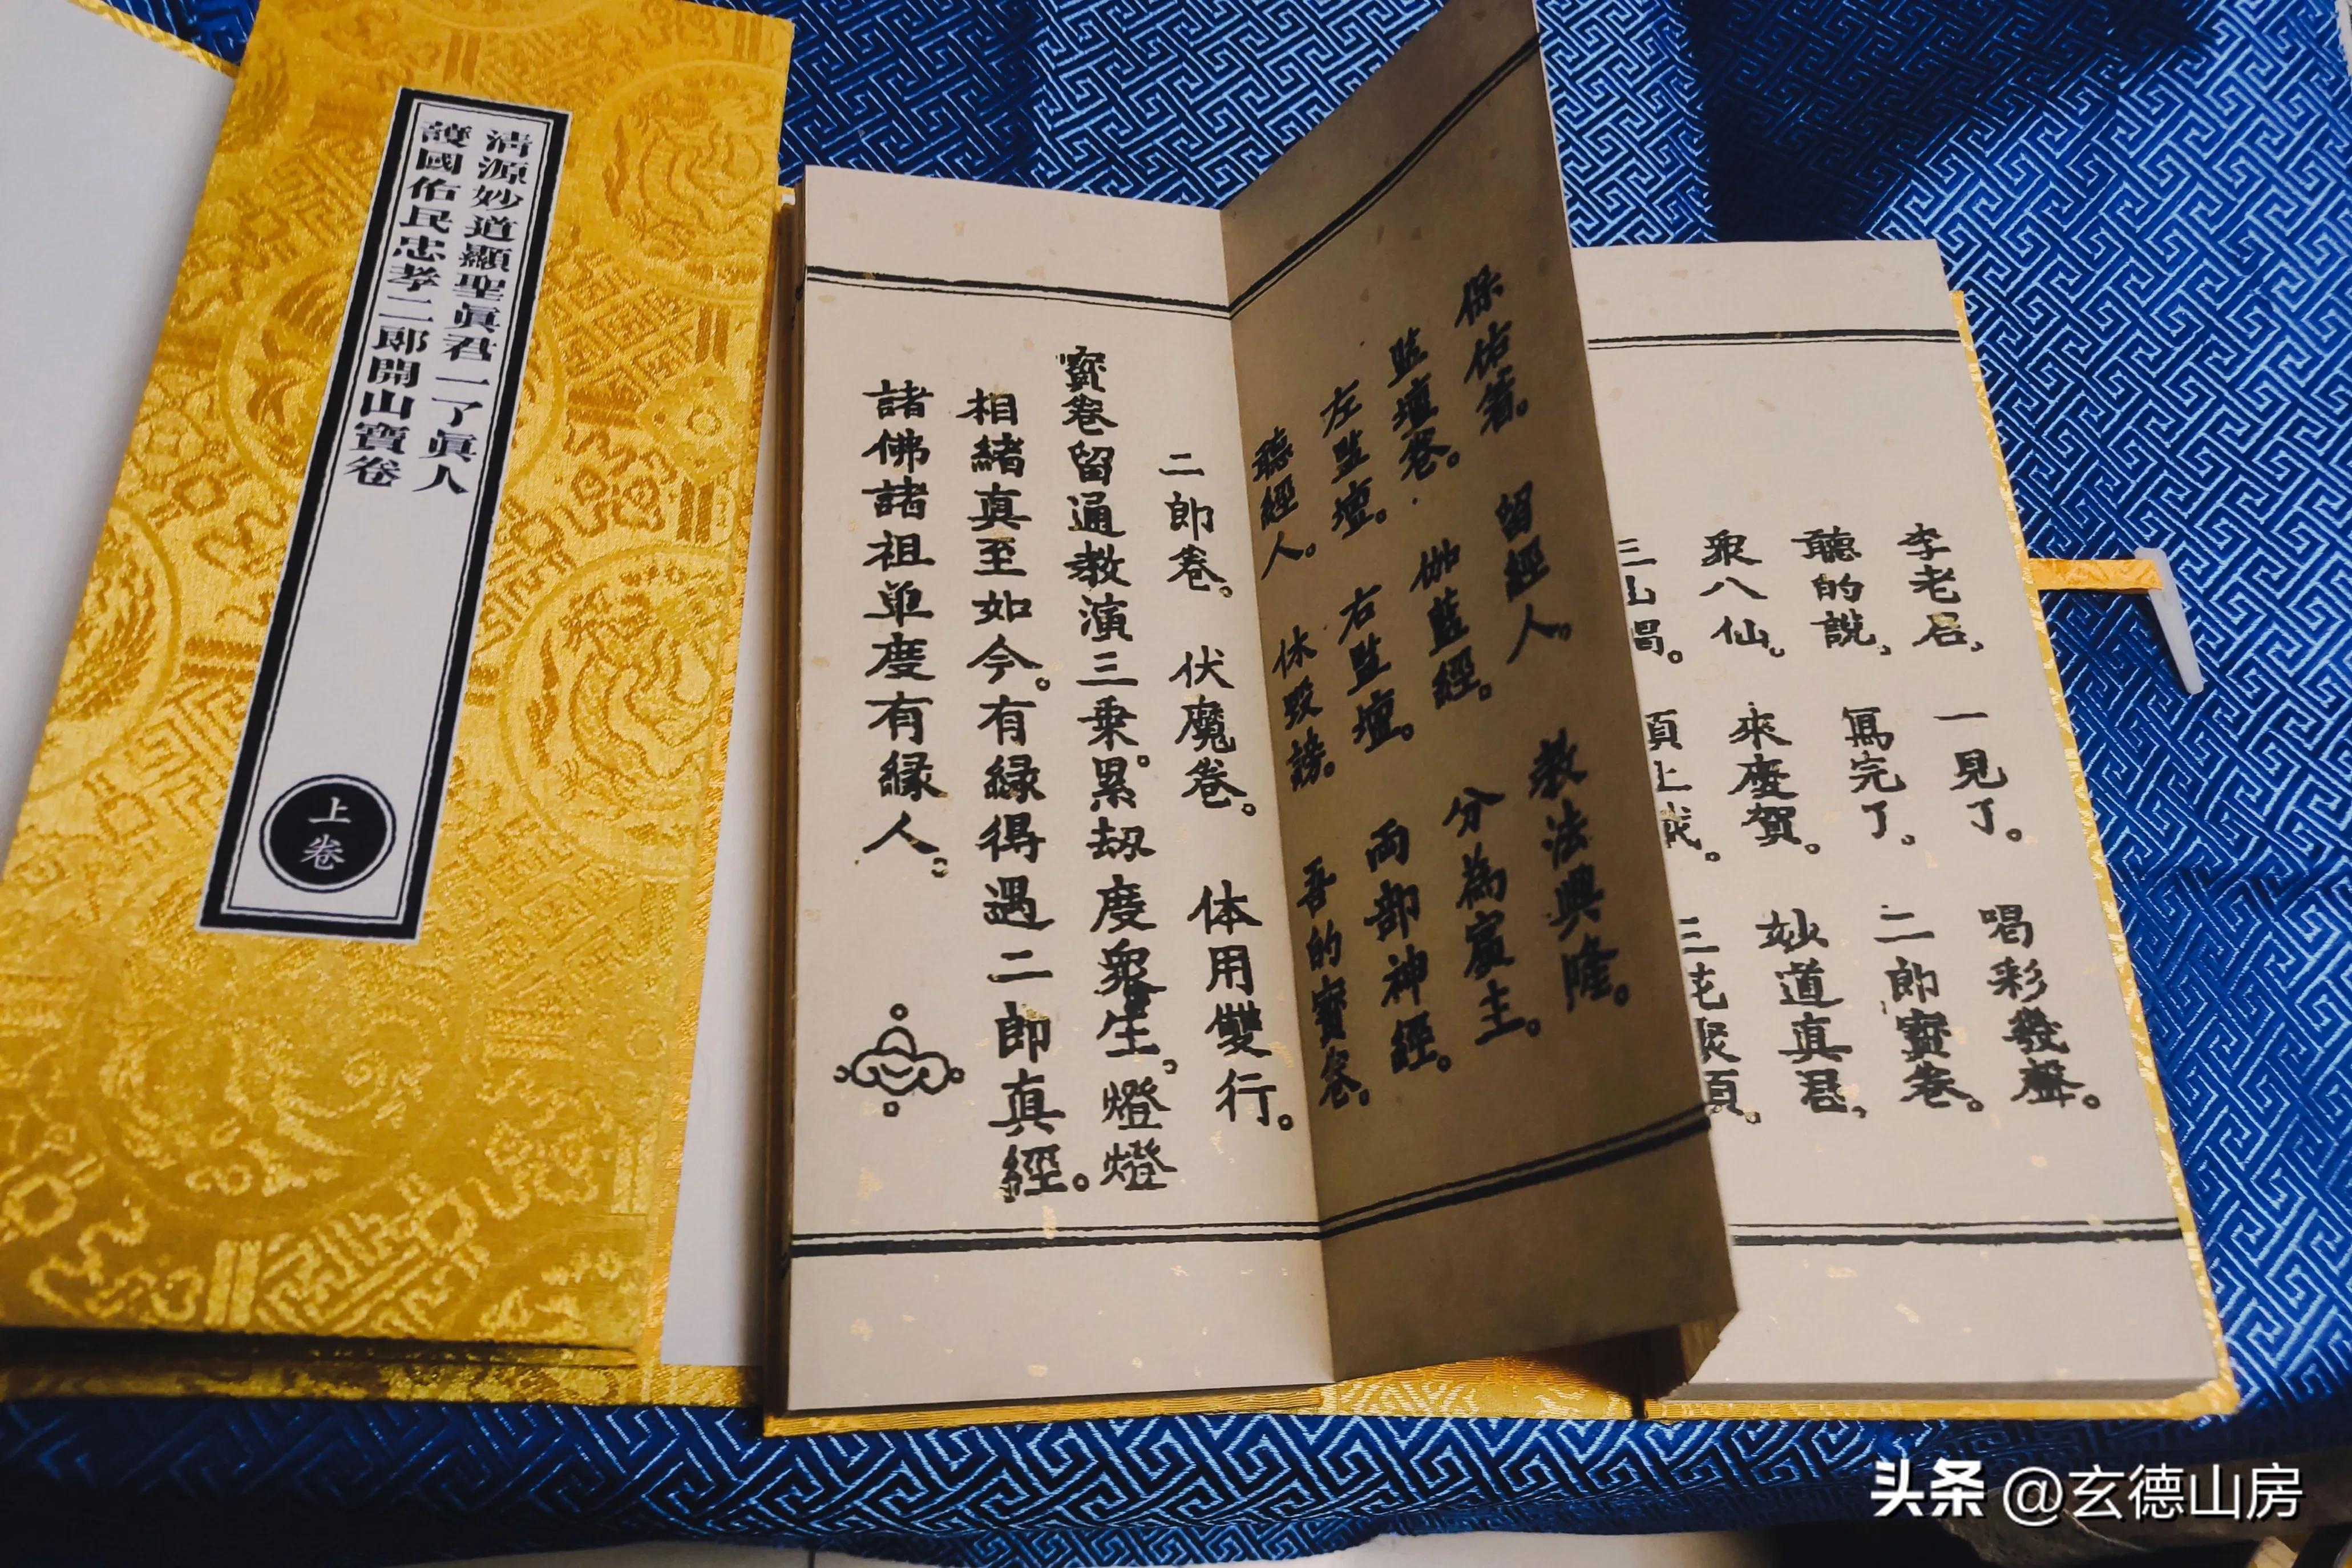 清源妙道顯聖眞君一了眞人
護國佑民忠孝二郎開山寶卷
上卷
李老君，一見了。喝彩幾聲。
聽的說，寫完了。二郎寶卷。
眾八仙。來慶賀。妙道真君，
保佑着。留經人。教法興隆。
監壇卷。伽藍經。分為賓主。
左監壇。右監壇。両部神經。
聽經人。休毀謗。吾的寶卷。
二郎卷。伏魔卷。体用雙行。
寶卷留通教演三乗。累劫度眾生。燈燈
相緒真至如今。有緣得遇二郎真經。
諸佛諸祖单度有緣人。
头条 @玄德山房